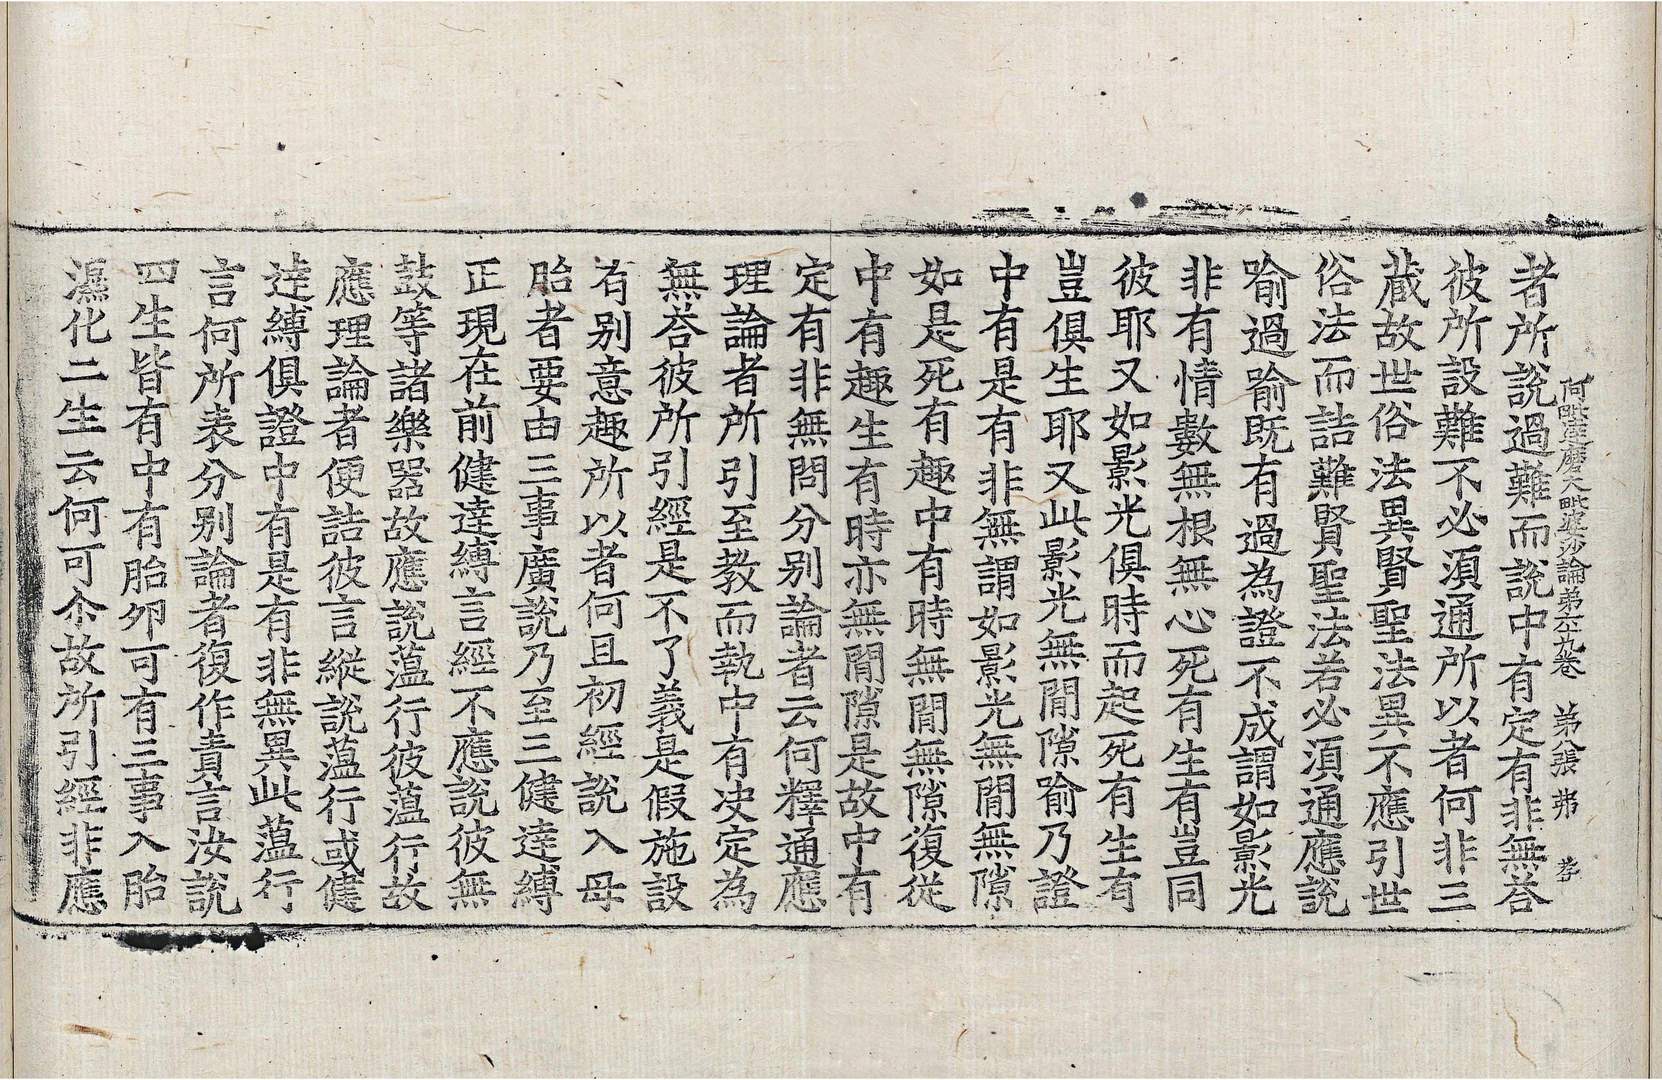 阿毗達磨大毗婆沙論弟六十九卷 弟八張 弗
者所說過難而說中有定有非無荅
彼所設難不必湏通所以者何非三
蔵故世俗法異賢聖法異不應引世
俗法而詰難賢聖法若必湏通應說
喻過喻既有過為證不成謂如影光
非有情數無根無心死有生有豈同
彼耶又如影光俱時而起死有生有
豈俱生耶又此影光無間隙喻乃證
中有是有非無謂如影光無間無隙
如是死有趣中有時無間無隙復從
中有趣生有時亦無間隙是故中有
定有非無問分別論者云何釋通應
理論者所引至教而執中有决定為
無荅彼所引經是不了義是假施設
有別意趣所以者何且初經說入母
胎者要由三事廣說乃至三健達縛
正現在前健達縛言經不應說彼無
鼓等諸樂器故應說薀行彼薀行故
應理論者便詰彼言縱說薀行或健
達縛俱證中有是有非無異此薀行
言何所表分別論者復作責言汝說
四生皆有中有胎夘可有三事入胎
濕化二生云何可尒故所引經非應